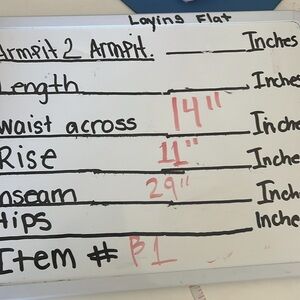 Laying Flat
Armpit 2 Armpit. Inches
Length Inches
Waist across 14" Inche
Rise 11" Inche
nseam 29" Inch
Hips Inche
Item # B1